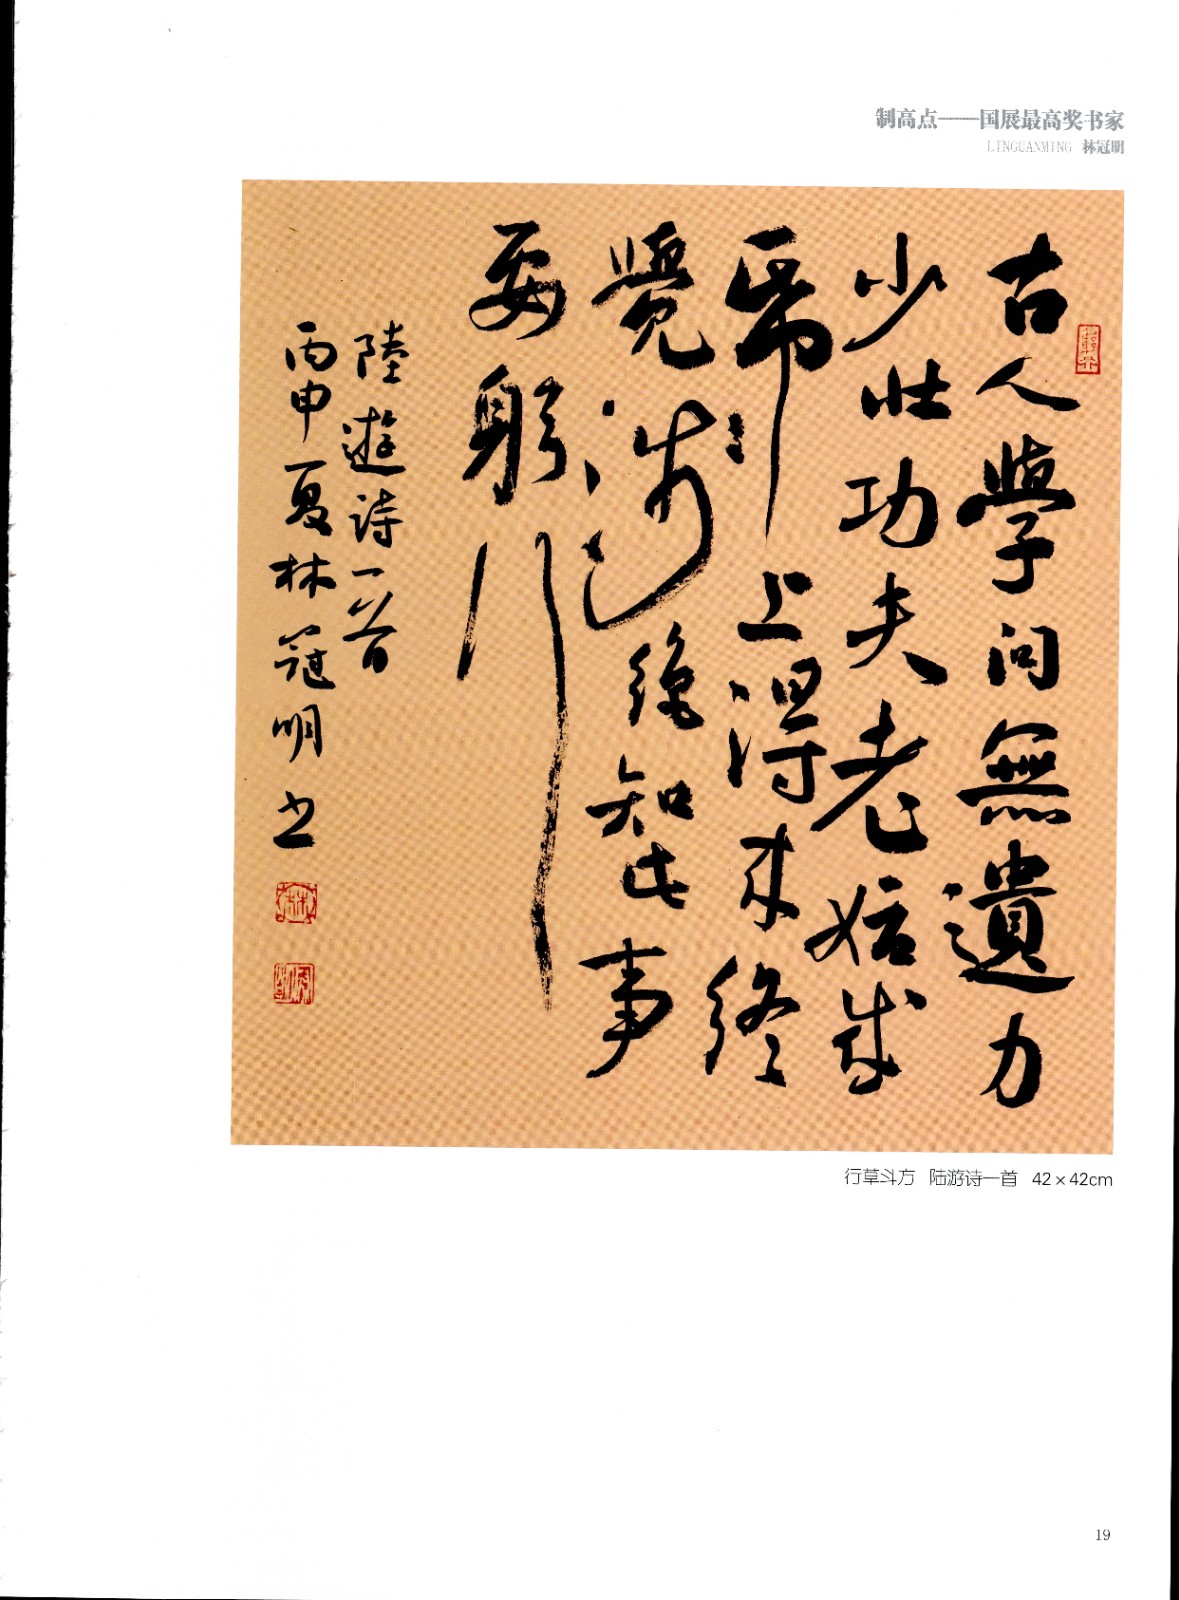 制高点——国展最高奖书家
LINGUANMING 林冠明
古人學問無遺力
少壯功夫老始成
帋上得來終
覺淺絶知此事
要躬行
陸遊詩一首
丙申夏林冠明书
行草斗方 陆游诗一首 42×42cm
19